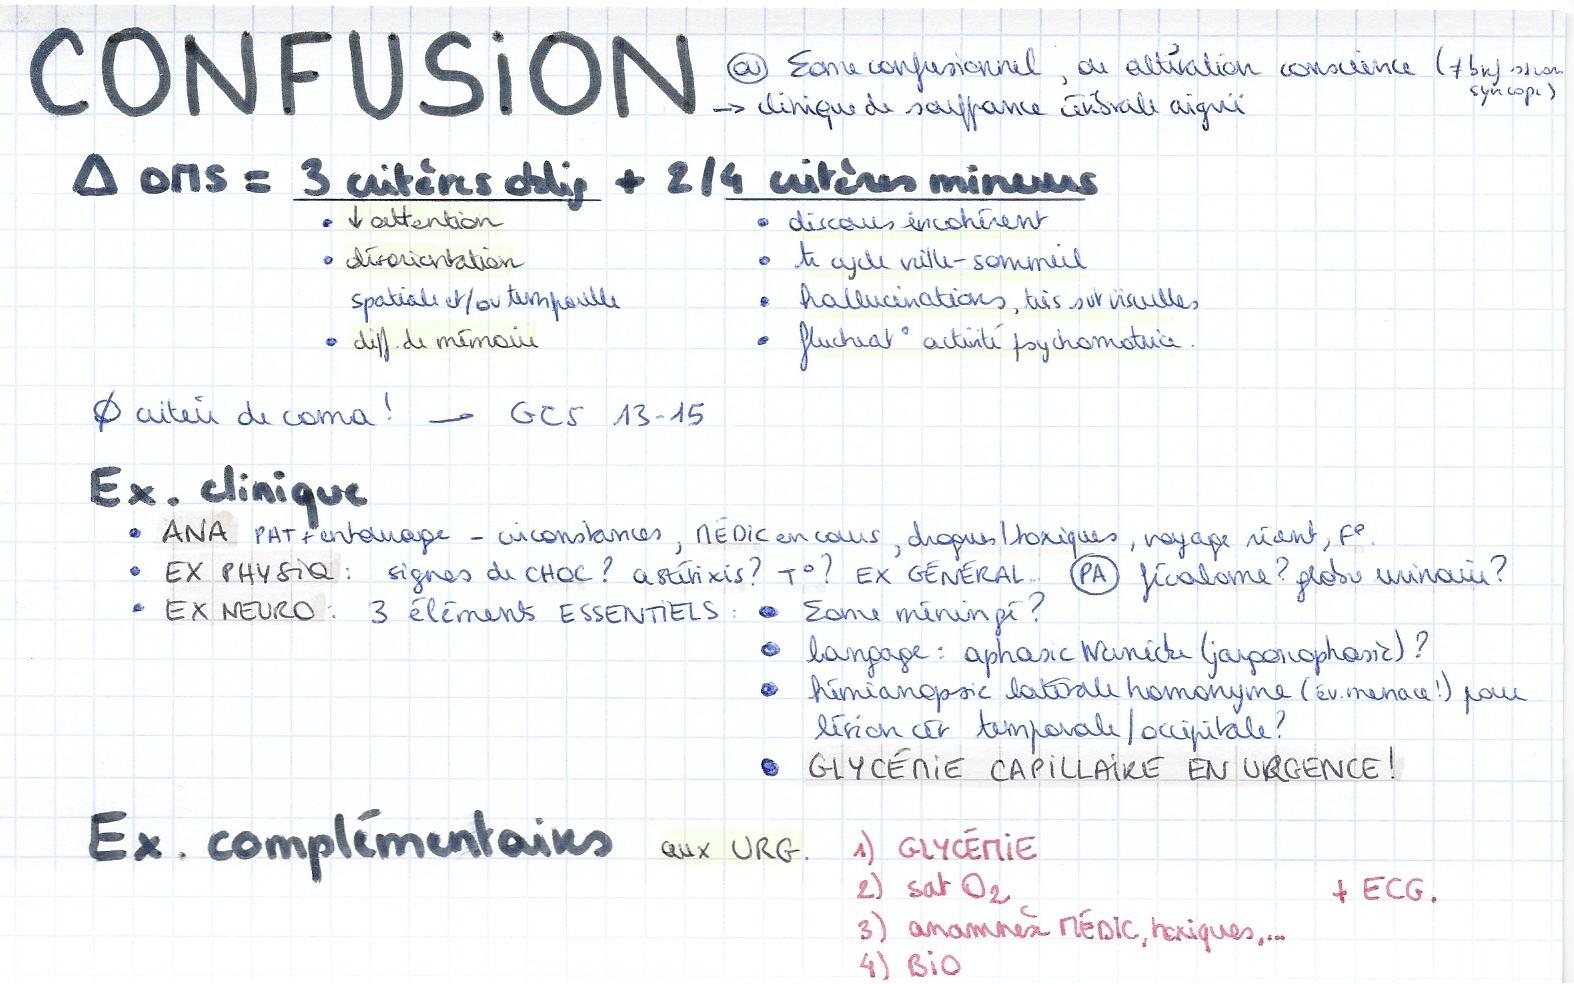 CONFUSION
@ Σome confusionnel, ou altération conscience (≠ brf sinon syncope)
→ clinique de souffrance cérébrale aiguë
Δ OMS = 3 critères oblig + 2/4 critères mineurs
• ↓ attention
• discours incohérent
• désorientation
• tr cycle veille-sommeil
spatiale et/ou temporelle
• hallucinations, très svt visuelles
• diff. de mémoire
• fluctuat° activité psychomotrice.
∅ critère de coma! → GCS 13-15
Ex. clinique
• ANA PAT + entourage - circonstances, MÉDIC en cours, drogues/toxiques, voyage récent, F°.
• EX PHYSIQ: signes de CHOC? astérixis? T°? EX GÉNÉRAL.. PA fécalome? globe urinaire?
• EX NEURO: 3 éléments ESSENTIELS: • Σome méningé?
• langage: aphasie Wernicke (jargonophasie)?
• hémianopsie latérale homonyme (év. menace!) pour
lésion cér temporale/occipitale?
• GLYCÉMIE CAPILLAIRE EN URGENCE!
Ex. complémentaires aux URG. 1) GLYCÉMIE
2) sat O2 + ECG.
3) anamnèse MÉDIC, toxiques,...
4) BIO